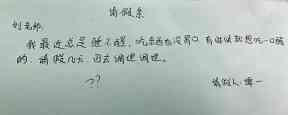 请假条
刘老师,
我最近总是睡不醒,吃东西也没胃口,有时候就想吃一口酸
的。请假几天,回去调理调理。
??
请假人: